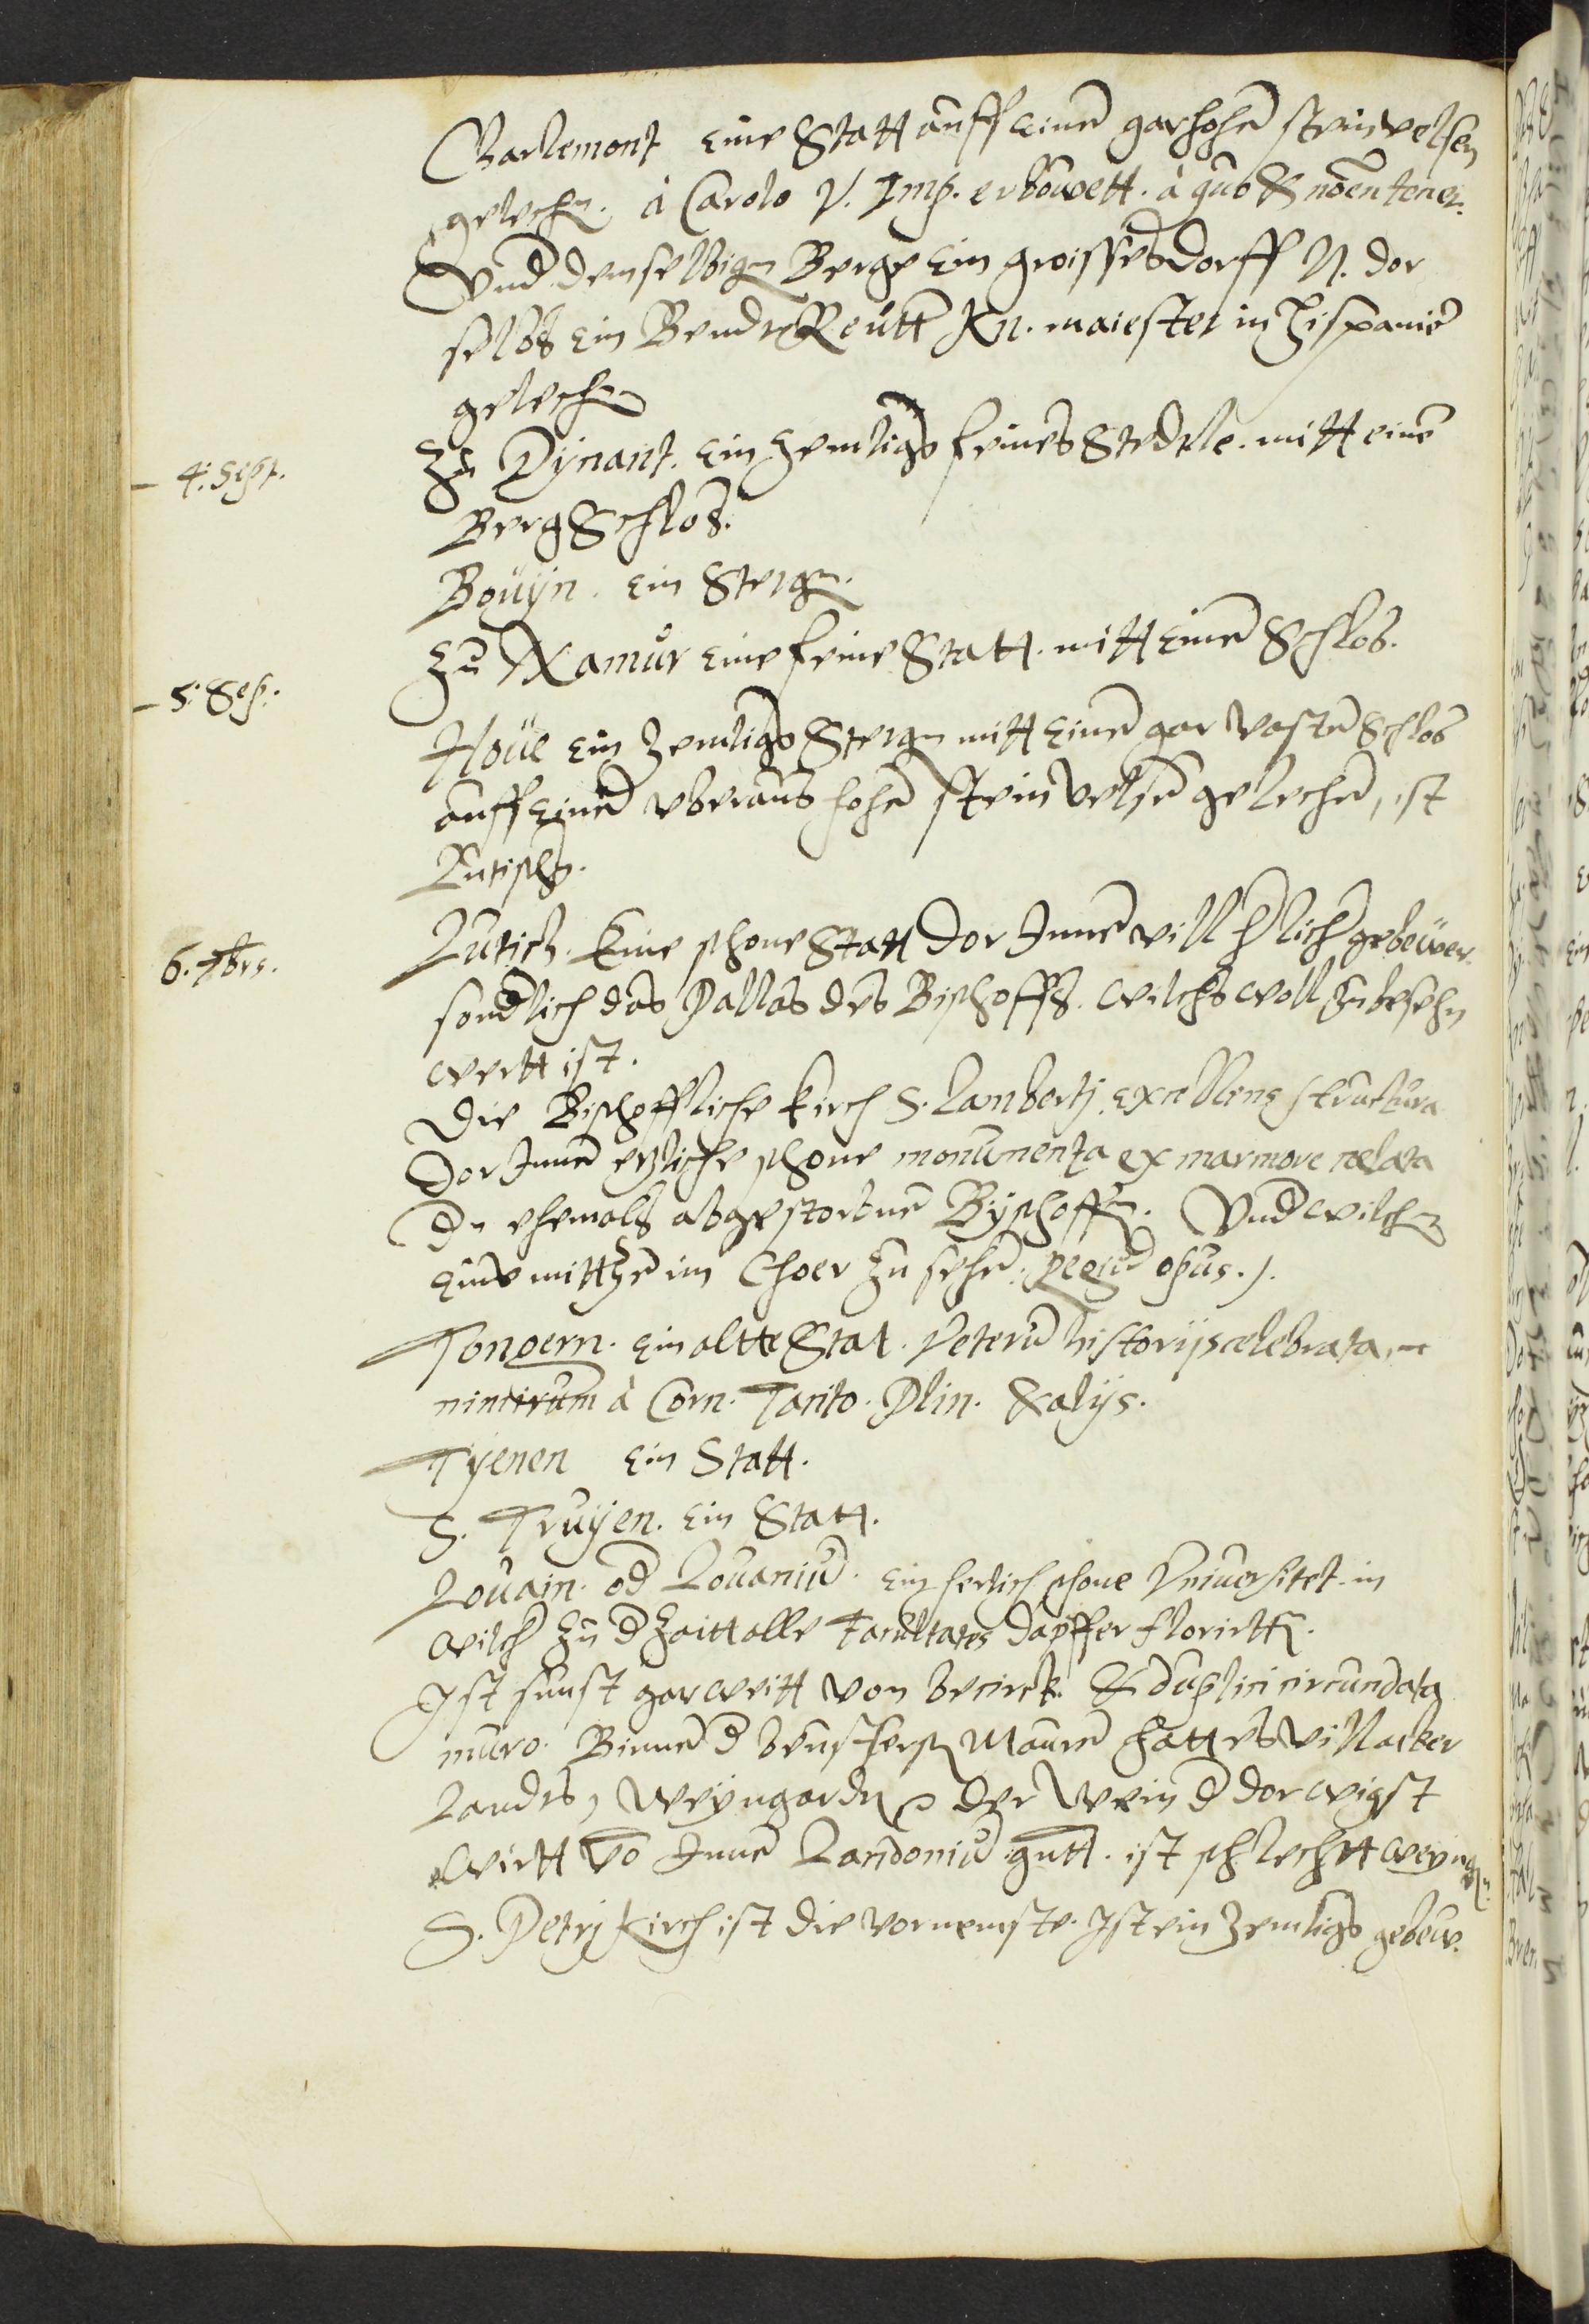 Charlemont eine Statt auff einē gar hohē steinvelsen
gelechn. à Carolo V. Imp. erbouwett. à quo & nōen tenet.
Vnd demselbign Berge ein groisses dorff N. dor
selbs ein Bendn Reutt Kn. maiestet in Hispaniē
gelechn
4. Sept.
Zu Dynant. ein zemligs feines Stedtle. mitt einē
Berg Schlos.
Bouyn. ein Stetgn.
Zu Namur eine feine Statt. mitt einē Schlos.
5. Sep.
Houe ein zemligs Stetgn mitt einē gar vastē Schlos
auff einē vberaus hohē stein velsē gelechē, ist
Lutisch.
6. 7brs.
Lutich. Eine schone Statt dor Innē vill hrlich gebeuwer.
sondlich das Pallas des Bischoffs. wilchs woll zu besehn
wertt ist.
Die Bischoffliche kirch S. Lambertj excellens structura
Dor Innē etzliche schone monumenta ex marmore cælata
dn ehemals abgestorbnē Byschoffn. Vnd wilchn
eins mittzē im Choer zu sehē: regiū opus.).
Tongern. ein altte Stat. Veterū historijs celebrata,
nimirum à Corn. Tacito. Plin. & alijs.
Tyenen ein Statt.
S. Truyen. ein Statt.
Louain. od Louaniū. ein herlich schone Vniuersitet. in
wilch zu d Zaitt alle Facultates dapffer floriertn.
Ist sunst gar weitt von becirck. & duplici circundata
muro. Binnē d  Maurē hatt es vill acker
Landes, Weyngardn der Wein d dor wigst
wirtt vō Innē Landoniū gutt. ist schlechtt
S. Petrj Kirch ist die vornemste. Ist ein zemligs gebeuw.